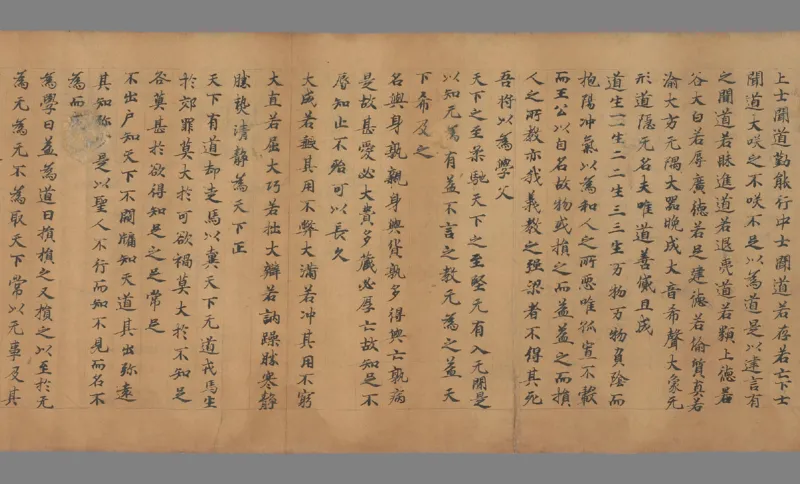 上士聞道勤能行中士聞道若存若亡下士
聞道大咲之不咲不足以為道是以建言有
之聞道若昧進道若退夷道若類上德若
谷大白若辱廣德若足建德若偷質真若
渝大方无隅大器晚成大音希聲大象无
形道隱无名夫唯道善貸且成
道生一一生二二生三三生万物万物負陰而
抱陽冲氣以為和人之所惡唯孤寡不轂
而王公以自名故物或損之而益益之而損
人之所教亦我義教之强梁者不得其死
吾將以為學父
天下之至柔馳天下之至堅无有入无間是
以知无為有益不言之教无為之益天
下希及之
名與身孰親身與貨孰多得與亡孰病
是故甚愛必大費多藏必厚亡故知足不
辱知止不殆可以長久
大成若缺其用不弊大滿若冲其用不窮
大直若屈大巧若拙大辯若訥躁勝寒静
勝熱清静為天下正
天下有道却走馬以糞天下无道戎馬生
於郊罪莫大於可欲禍莫大於不知足
咎莫甚於欲得知足之足常足
不出户知天下不闚牖知天道其出弥遠
其知弥是以聖人不行而知不見而名不
為而
為學日益為道日損損之又損之以至於无
為无為无不為取天下常以无事及其